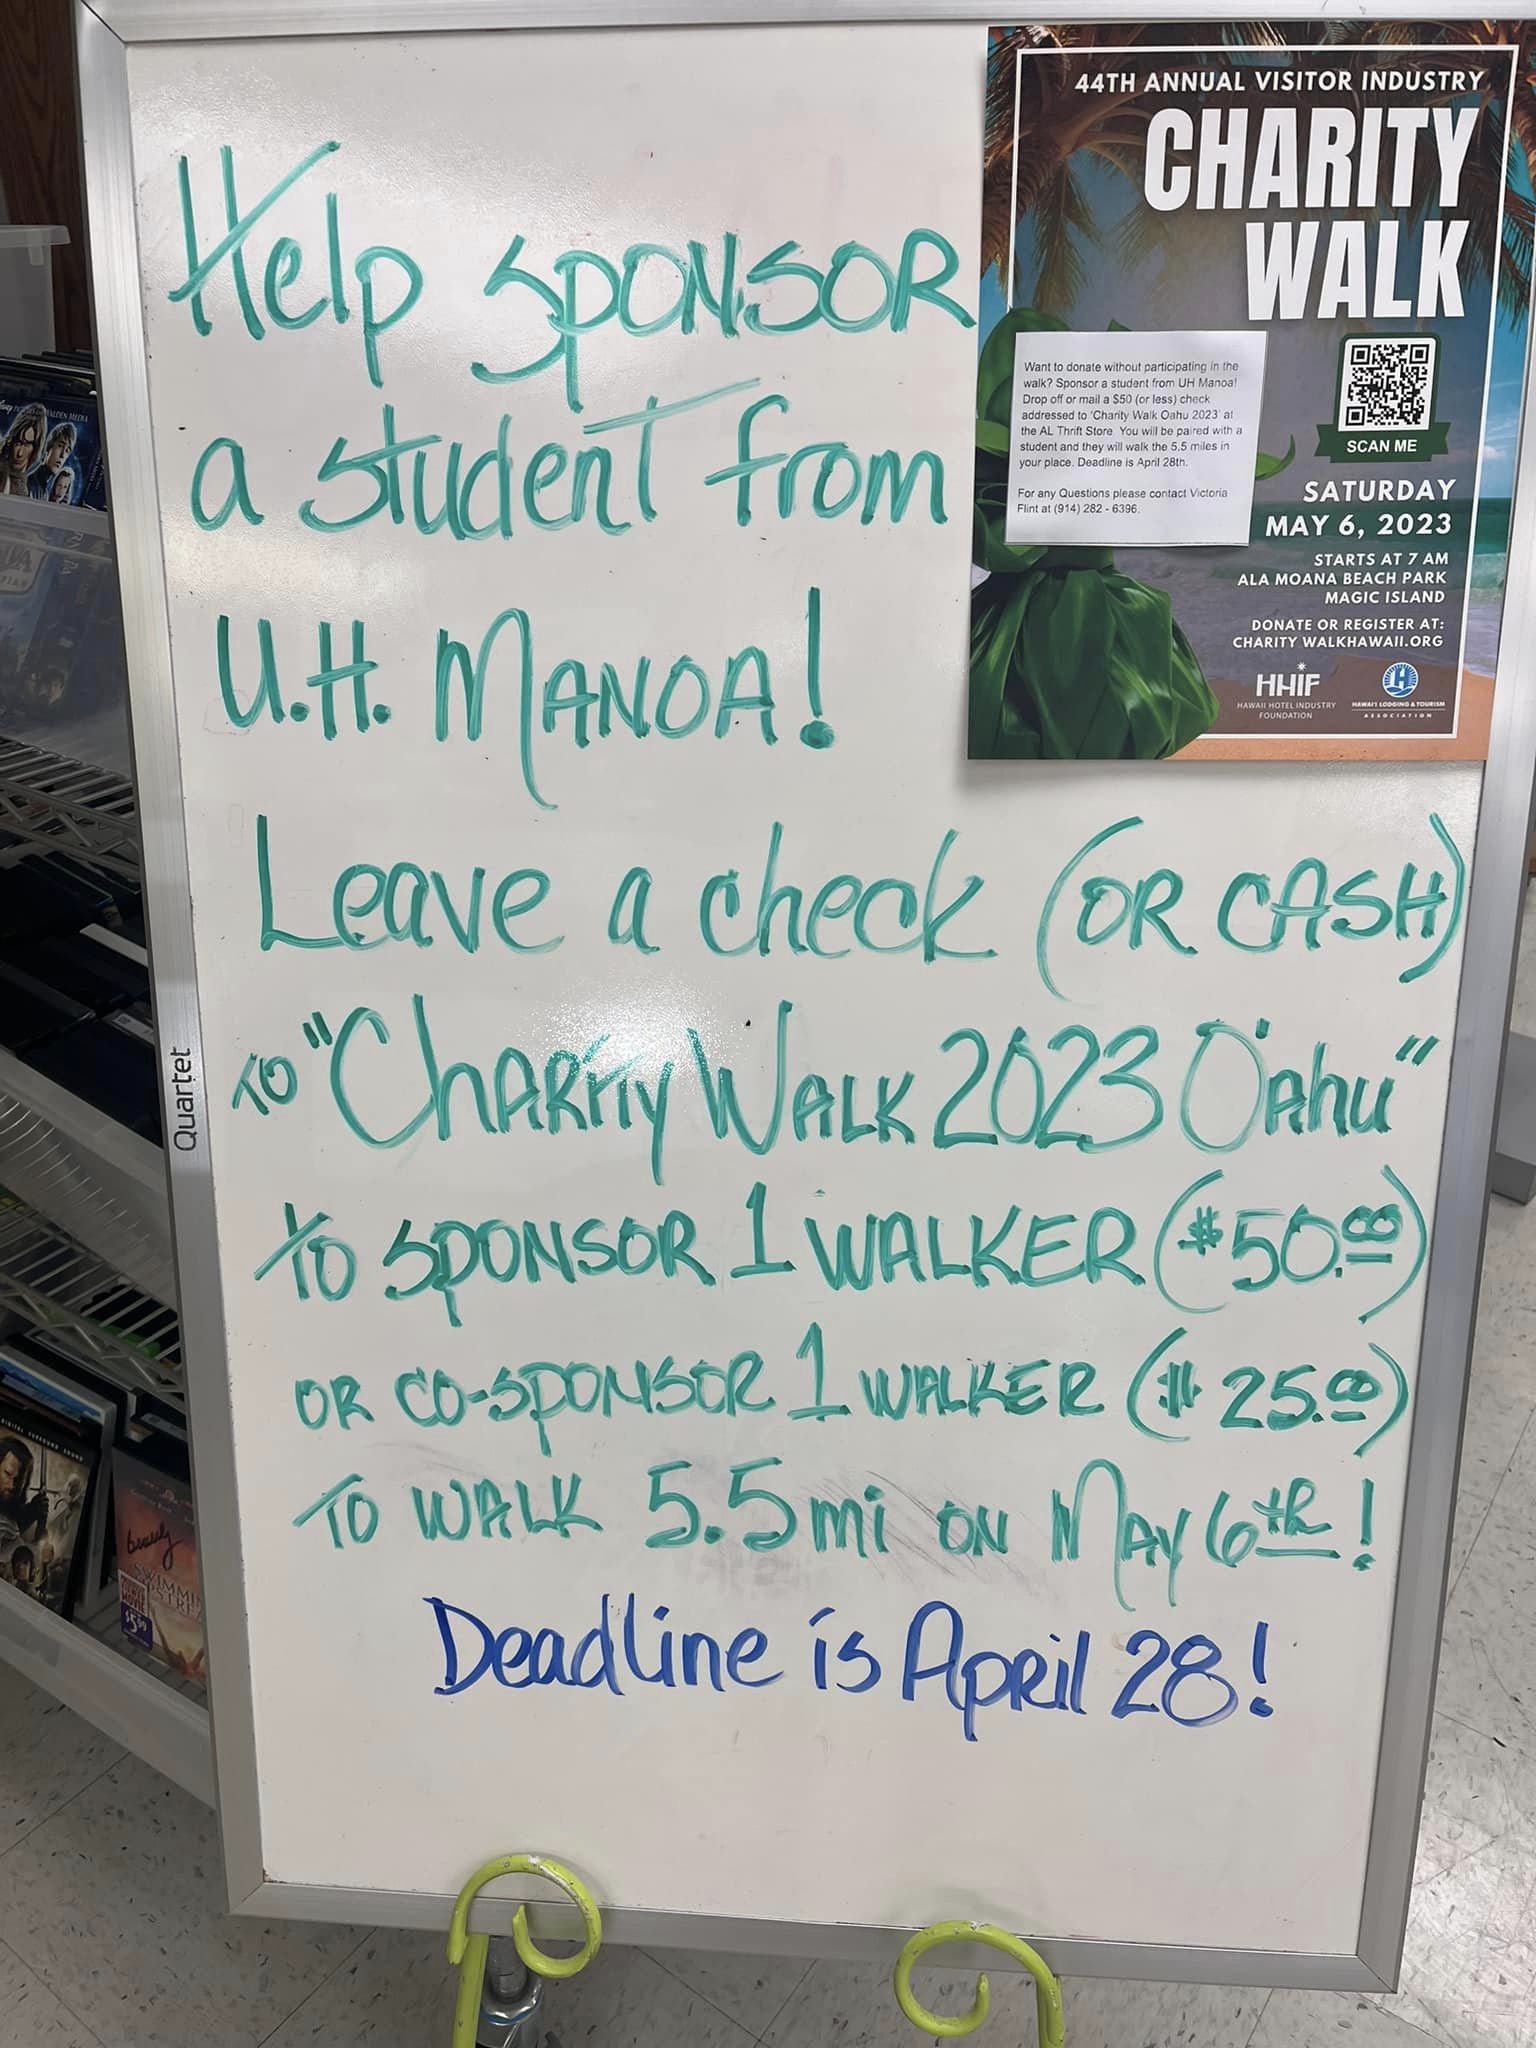 Help SPONSOR
a student from
U.H. MANOA!
Leave a check (OR CASH)
TO "CHARITY WALK 2023 O'AHU"
TO SPONSOR 1 WALKER ($50.00)
OR CO-SPONSOR 1 WALKER ($25.00)
TO WALK 5.5 mi ON MAY 6th!
Deadline is April 28!
44TH ANNUAL VISITOR INDUSTRY
CHARITY
WALK
Want to donate without participating in the
walk? Sponsor a student from UH Manoa!
Drop off or mail a $50 (or less) check
addressed to 'Charity Walk Oahu 2023' at
the AL Thrift Store. You will be paired with a
student and they will walk the 5.5 miles in
your place. Deadline is April 28th.
For any Questions please contact Victoria
Flint at (914) 282 - 6396.
SCAN ME
SATURDAY
MAY 6, 2023
STARTS AT 7 AM
ALA MOANA BEACH PARK
MAGIC ISLAND
DONATE OR REGISTER AT:
CHARITY WALKHAWAII.ORG
HHIF
HAWAII HOTEL INDUSTRY
FOUNDATION
H
HAWAI'I LODGING & TOURISM
ASSOCIATION
Quartet
WALDEN MEDIA
DIGITAL SURROUND SOUND
$5.99